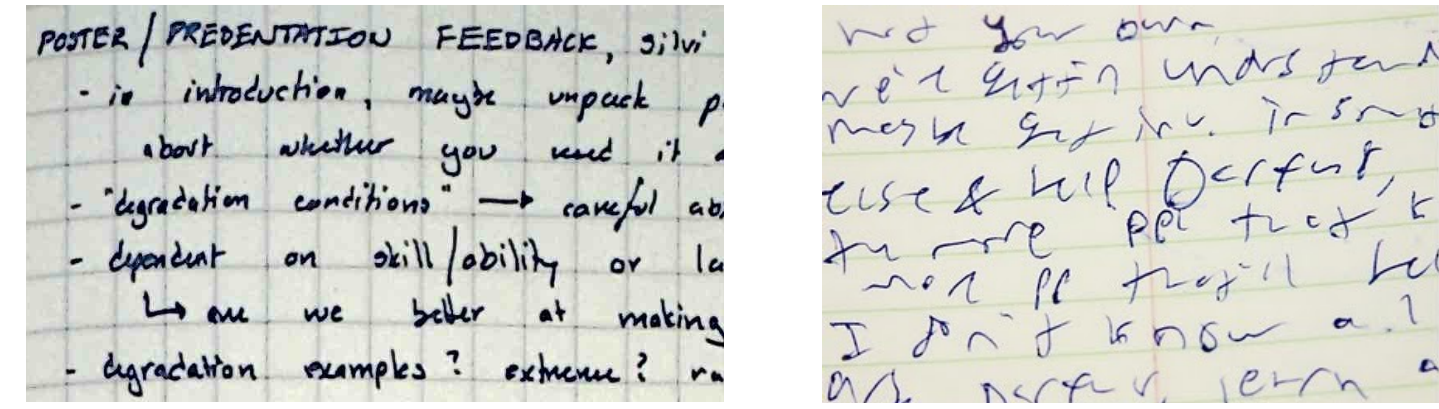 POSTER / PREDENTATION FEEDBACK, silvi
- in introduction, maybe unpack p
about whether you used it
- "degradation conditions" → careful ab
- dependent on skill/ability or la
↳ are we better at making
- degradation examples? extreme? ra
not your own
we'll gettin undrstand
maybe get inv. in
else & help
more ppl that k
mor pp that'll hel
I don't know
learn